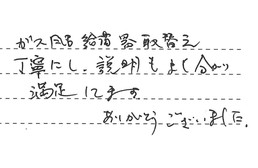 ガス同時給湯器取替え
丁寧にし、説明もよく分かり
満足してます
ありがとうございました。